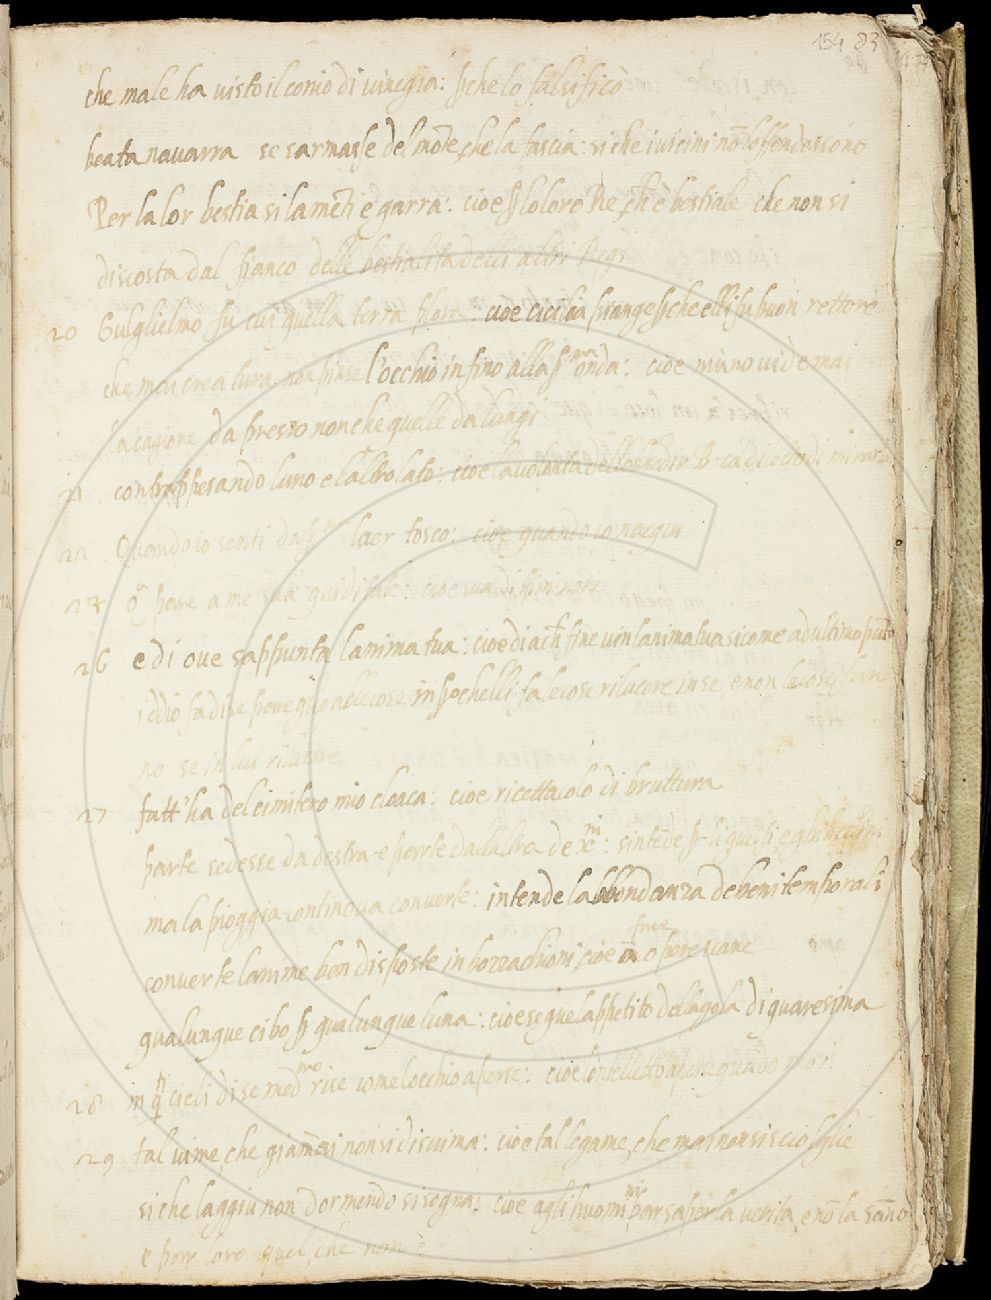 154 83
che male ha uisto il conio di uinegia: pche lo falsificò
beata nauarra se sarmasse del mõte che la fascia: si che i uicini nõ loffendessono
Per la lor bestia si lamẽti e garra: cioe p lo loro Re che è bestiale che non si
discosta dal fianco delle bestialita delli altri Regi
20 Gulglielmo fu cui quella terra plora: cioe cicilia piange pche elli fu buon rettore
che mai creatura non pinse l'occhio infino alla pma onda: cioe niuno uide mai
la cagione da presso non che quelle da lungi
21 contrappesando luno e laltro lato: cioe la uolonta
22 Quando io senti da pma laer tosco: cioe quando io nacqui
24 pare a me
26 e di oue sappunta lanima tua: cioe di a ch fine uin lanima tua si come ad ultimo pũto
iddio fa dise pareglio alle cose in pochelli fa le cose rilucere in se, e non le cose fan
no se in lui rilucere
27 fatt'ha del cimitero mio cloaca: cioe ricettacolo di bruttura
parte sedesse da destra e parte dallaltra de xni: sintẽde p li guelfi e ghibellini
ma la pioggia continoua conuerte: intende labbondanza de beni temporali
conuerte lanime ben disposte in bozzachioni cioe in opere uane
qualunque cibo p qualunque luna: cioe segue lappetito della gola di quaresima
28 in q cieli di se medmo rise come locchio aperse: cioe lontelletto
29 tal uime, che giamai non si disuima: cioe tal legame, che mai non si scioglie
si che laggiu non dormendo si sogna: cioe agli huomini par saper la uerita, e nõ la sãno
e pare loro quel, che non è